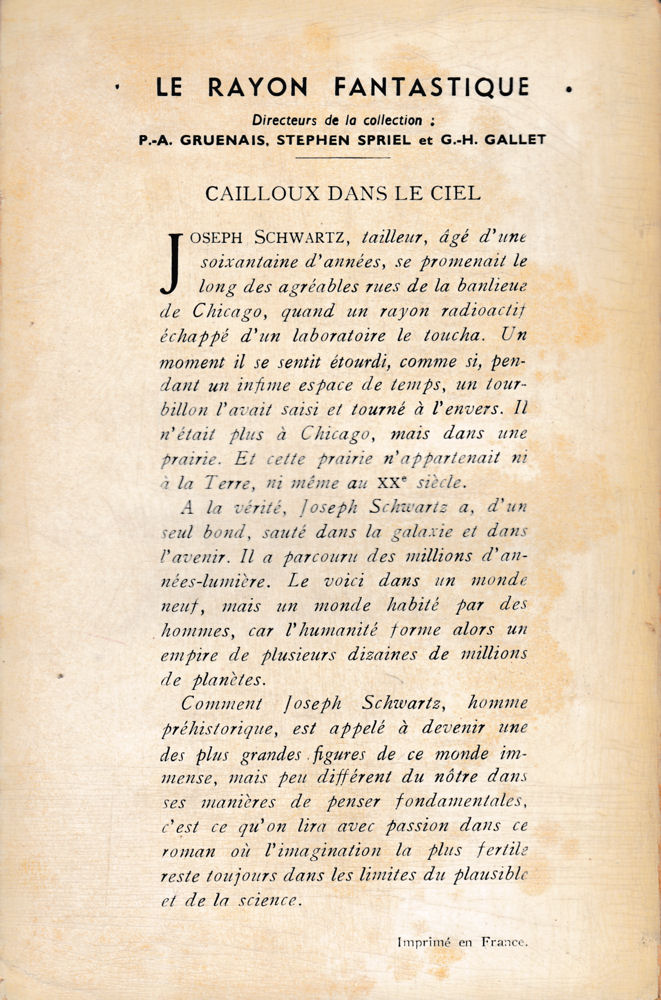 LE RAYON FANTASTIQUE
Directeurs de la collection :
P.-A. GRUENAIS, STEPHEN SPRIEL et G.-H. GALLET
CAILLOUX DANS LE CIEL
JOSEPH SCHWARTZ, tailleur, âgé d'une
soixantaine d'années, se promenait le
long des agréables rues de la banlieue
de Chicago, quand un rayon radioactif
échappé d'un laboratoire le toucha. Un
moment il se sentit étourdi, comme si, pen-
dant un infime espace de temps, un tour-
billon l'avait saisi et tourné à l'envers. Il
n'était plus à Chicago, mais dans une
prairie. Et cette prairie n'appartenait ni
à la Terre, ni même au XXe siècle.
A la vérité, Joseph Schwartz a, d'un
seul bond, sauté dans la galaxie et dans
l'avenir. Il a parcouru des millions d'an-
nées-lumière. Le voici dans un monde
neuf, mais un monde habité par des
hommes, car l'humanité forme alors un
empire de plusieurs dizaines de millions
de planètes.
Comment Joseph Schwartz, homme
préhistorique, est appelé à devenir une
des plus grandes figures de ce monde im-
mense, mais peu différent du nôtre dans
ses manières de penser fondamentales,
c'est ce qu'on lira avec passion dans ce
roman où l'imagination la plus fertile
reste toujours dans les limites du plausible
et de la science.
Imprimé en France.